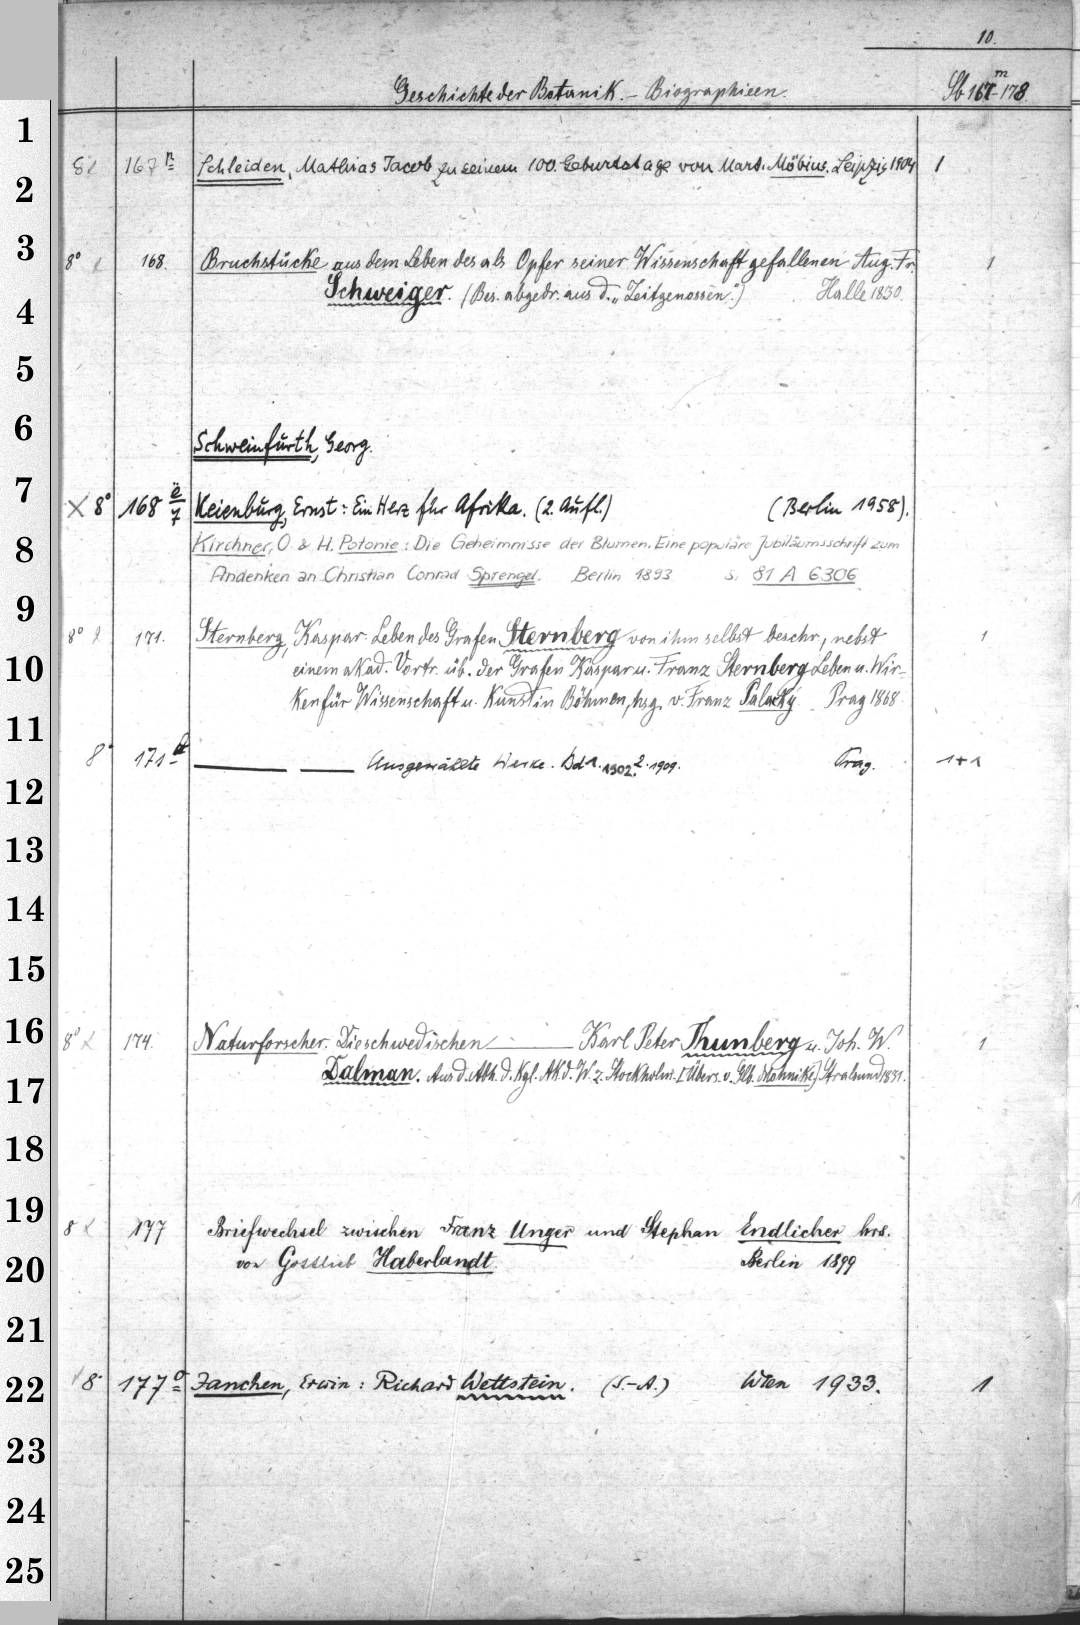 10.
Geschichte der Botanik. – Biographieen. Sb 167m-178.
1
8 167n Schleiden, Mathias Jacob, zu seinem 100. Geburtstage von Mart. Möbius. Leipzig 1904 1
2
3
8° 168. Bruchstücke aus dem Leben des als Opfer seiner Wissenschaft gefallenen Aug. Fr. 1
Schweiger. (Bes. abgedr. aus d. „Zeitgenossen".) Halle 1830.
4
5
6
Schweinfurth, Georg.
7
X 8° 168 ë/7 Keienburg, Ernst: Ein Herz für Afrika. (2. Aufl.) (Berlin 1958).
8
Kirchner, O. & H. Potonie: Die Geheimnisse der Blumen. Eine populäre Jubiläumsschrift zum
Andenken an Christian Conrad Sprengel. Berlin 1893 s. 81 A 6306
9
8° 171. Sternberg, Kaspar: Leben des Grafen Sternberg von ihm selbst beschr., nebst 1
10
einem akad. Vortr. üb. der Grafen Kaspar u. Franz Sternberg Leben u. Wir-
ken für Wissenschaft u. Kunst in Böhmen, hsg. v. Franz Palacký. Prag 1868.
11
8° 171 Ausgewählte Werke. Bd 1. 1902. 2. 1909. Prag. 1+1
12
13
14
15
16
8° 174. Naturforscher. Die schwedischen Karl Peter Thunberg u. Joh. W. 1
17
Dalman. Aus d. Abh. d. Kgl. Ak. d. W. z. Stockholm. [Übers. v. Glb. Mohnike] Stralsund 1831.
18
19
8 177 Briefwechsel zwischen Franz Unger und Stephan Endlicher hrs.
20
von Gottlieb Haberlandt. Berlin 1899
21
22
8° 177o Janchen, Erwin: Richard Wettstein. (S.-A.) Wien 1933. 1
23
24
25